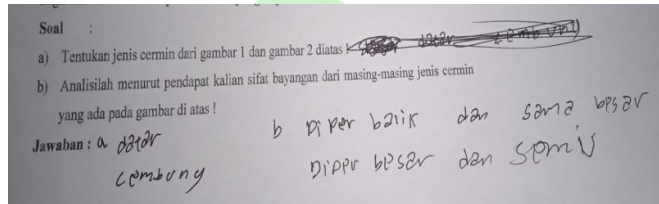 Soal :
a) Tentukan jenis cermin dari gambar 1 dan gambar 2 diatas ! datar cembung
b) Analisilah menurut pendapat kalian sifat bayangan dari masing-masing jenis cermin
yang ada pada gambar di atas !
Jawaban : a datar
cembung
b Di per balik dan sama besar
Diper besar dan semu